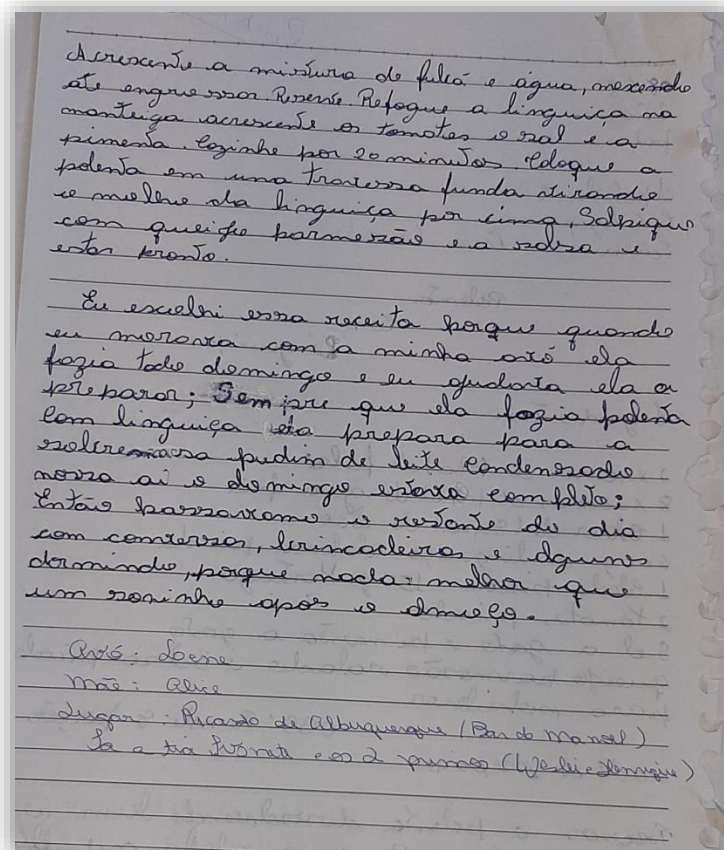 Acrescente a mistura de fubá e água, mexendo
até engrossar. Reserve. Refogue a linguiça na
manteiga acrescente os tomates o sal e a
pimenta. Cozinhe por 20 minutos. Coloque a
polenta em uma travessa funda virando
o molho da linguiça por cima. Salpique
com queijo parmesão e a salsa e
estar pronto.
Eu escolhi essa receita porque quando
eu morava com a minha avó ela
fazia todo domingo e eu ajudava ela a
preparar; Sempre que ela fazia polenta
com linguiça ela prepara para a
sobremesa pudim de leite condensado
nossa aí o domingo estava completo;
Então passavamo o restante do dia
com conversas, brincadeiras e alguns
dormindo, porque nada melhor que
um soninho após o almoço.
Avó: Loene
Mãe: Alice
Lugar: Ricardo de Albuquerque (Bar do Manoel)
a tia e os 2 primos (Weslei e Henrique)